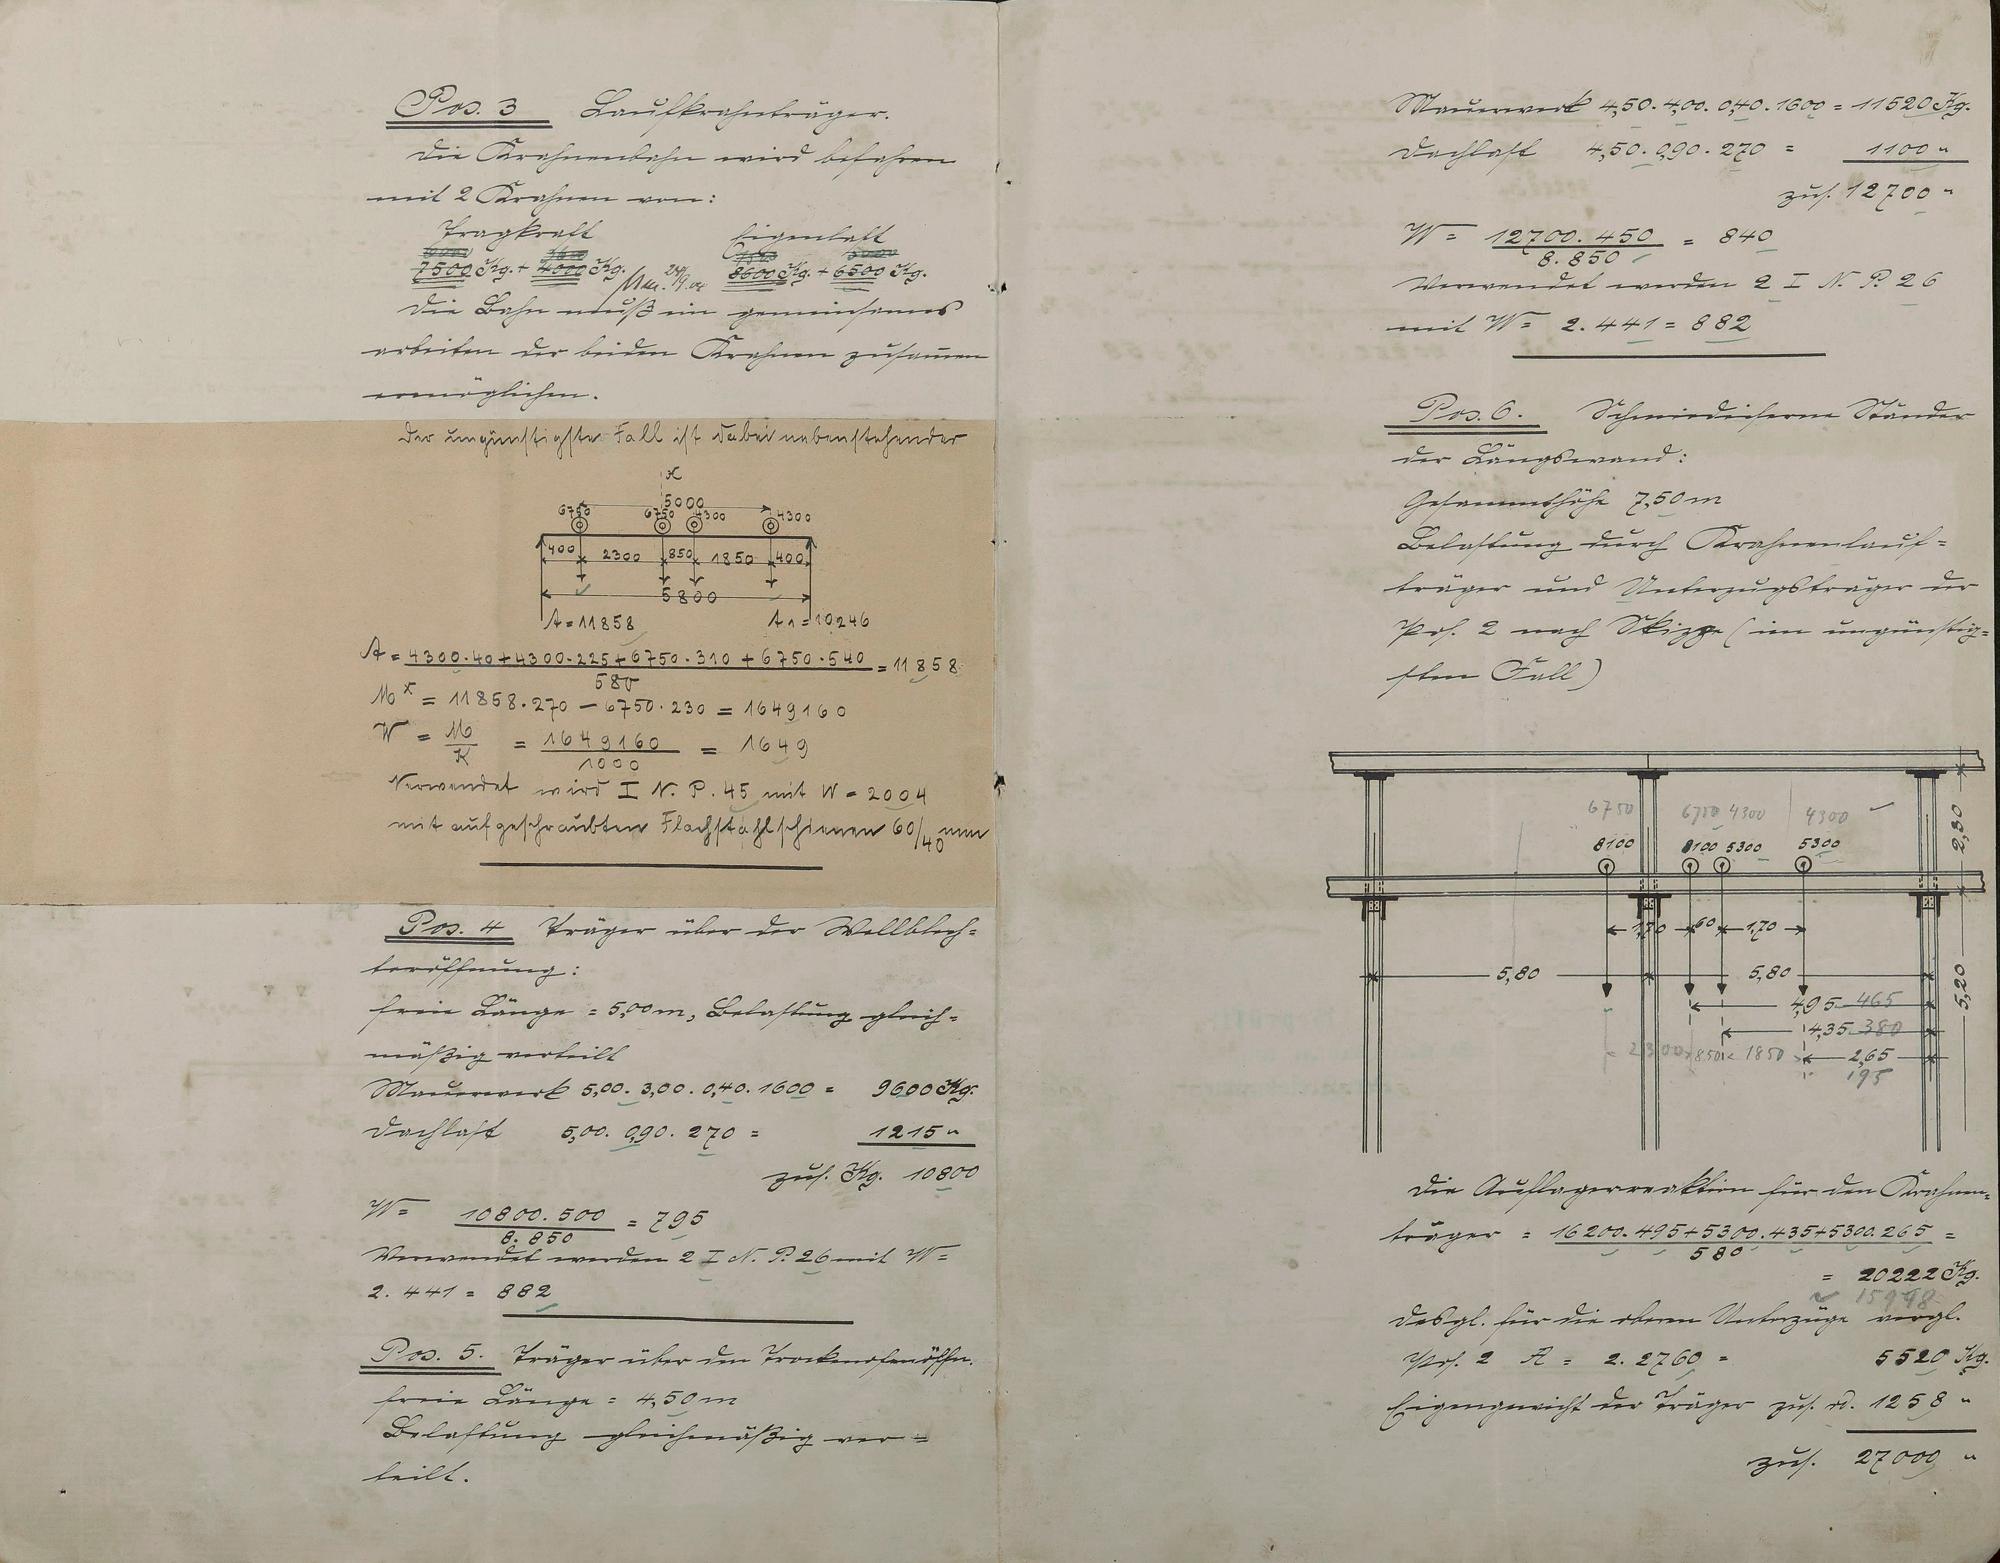 Pos. 3 Laufkrahnträger.
Die Krahnenbahn wird befahren
mit 2 Krahnen von:
Tragkraft Eigenlast
7500 Kg. + 4000 Kg. 8600 Kg. + 6500 Kg.
Die Bahn muß ein gemeinsames
arbeiten der beiden Krahnen zusamen
ermöglichen.
Der ungünstigste Fall ist dabei nebenstehender
x
5000
6750 6750 4300 4300
400 2300 850 1850 400
5800
A = 11858 A1 = 10246
A = 4300·40+4300·225+6750·310+6750·540 = 11858
580
Mx = 11858·270 – 6750·230 = 1649160
W = M = 1649160 = 1649
K 1000
Verwendet wird I N. P. 45 mit W = 2004
mit aufgeschraubten Flachstahlschienen 60/40 mm
Pos. 4 Träger über der Wellblech=
toröffnung:
freie Länge = 5,00 m, Belastung gleich=
mäßig verteilt
Mauerwerk 5,00. 3,00. 0,40. 1600 = 9600 Kg.
Dachlast 5,00. 0,90. 270 = 1215 "
zus. Kg. 10800
W = 10800. 500 = 795
8. 850
Verwendet werden 2 I N. P. 26 mit W =
2. 441 = 882
Pos. 5. Träger über den Trockenofenöffn.
freie Länge = 4,50 m
Belastung gleichmäßig ver=
teilt.
Mauerwerk 4,50. 4,00. 0,40. 1600 = 11520 Kg.
Dachlast 4,50. 0,90. 270 = 1100 "
zus. 12700 "
W = 12700. 450 = 840
8. 850
Verwendet werden 2 I N. P. 26
mit W = 2. 441 = 882
Pos. 6. Schmiedeiserne Ständer
der Längswand:
Gesammthöhe 7,50 m
Belastung durch Krahnenlauf=
träger und Unterzugsträger der
Pos. 2 nach Skizze (im ungünstig=
sten Fall)
6750 6750 4300 4300
8100 8100 5300 5300
2,30
1,70 60 1,70
5,80 5,80
5,20
4,95 465
4,35 380
2300 850 1850 2,65
195
Die Auflagerreaktion für den Krahnen=
träger = 16200. 495+5300. 435+5300. 265 =
580
= 20222 Kg.
15998
Desgl. für die oberen Unterzüge vergl.
Pos. 2 A = 2. 2760 = 5520 Kg.
Eigengewicht der Träger zus. rd. 1258 "
zus. 27000 "